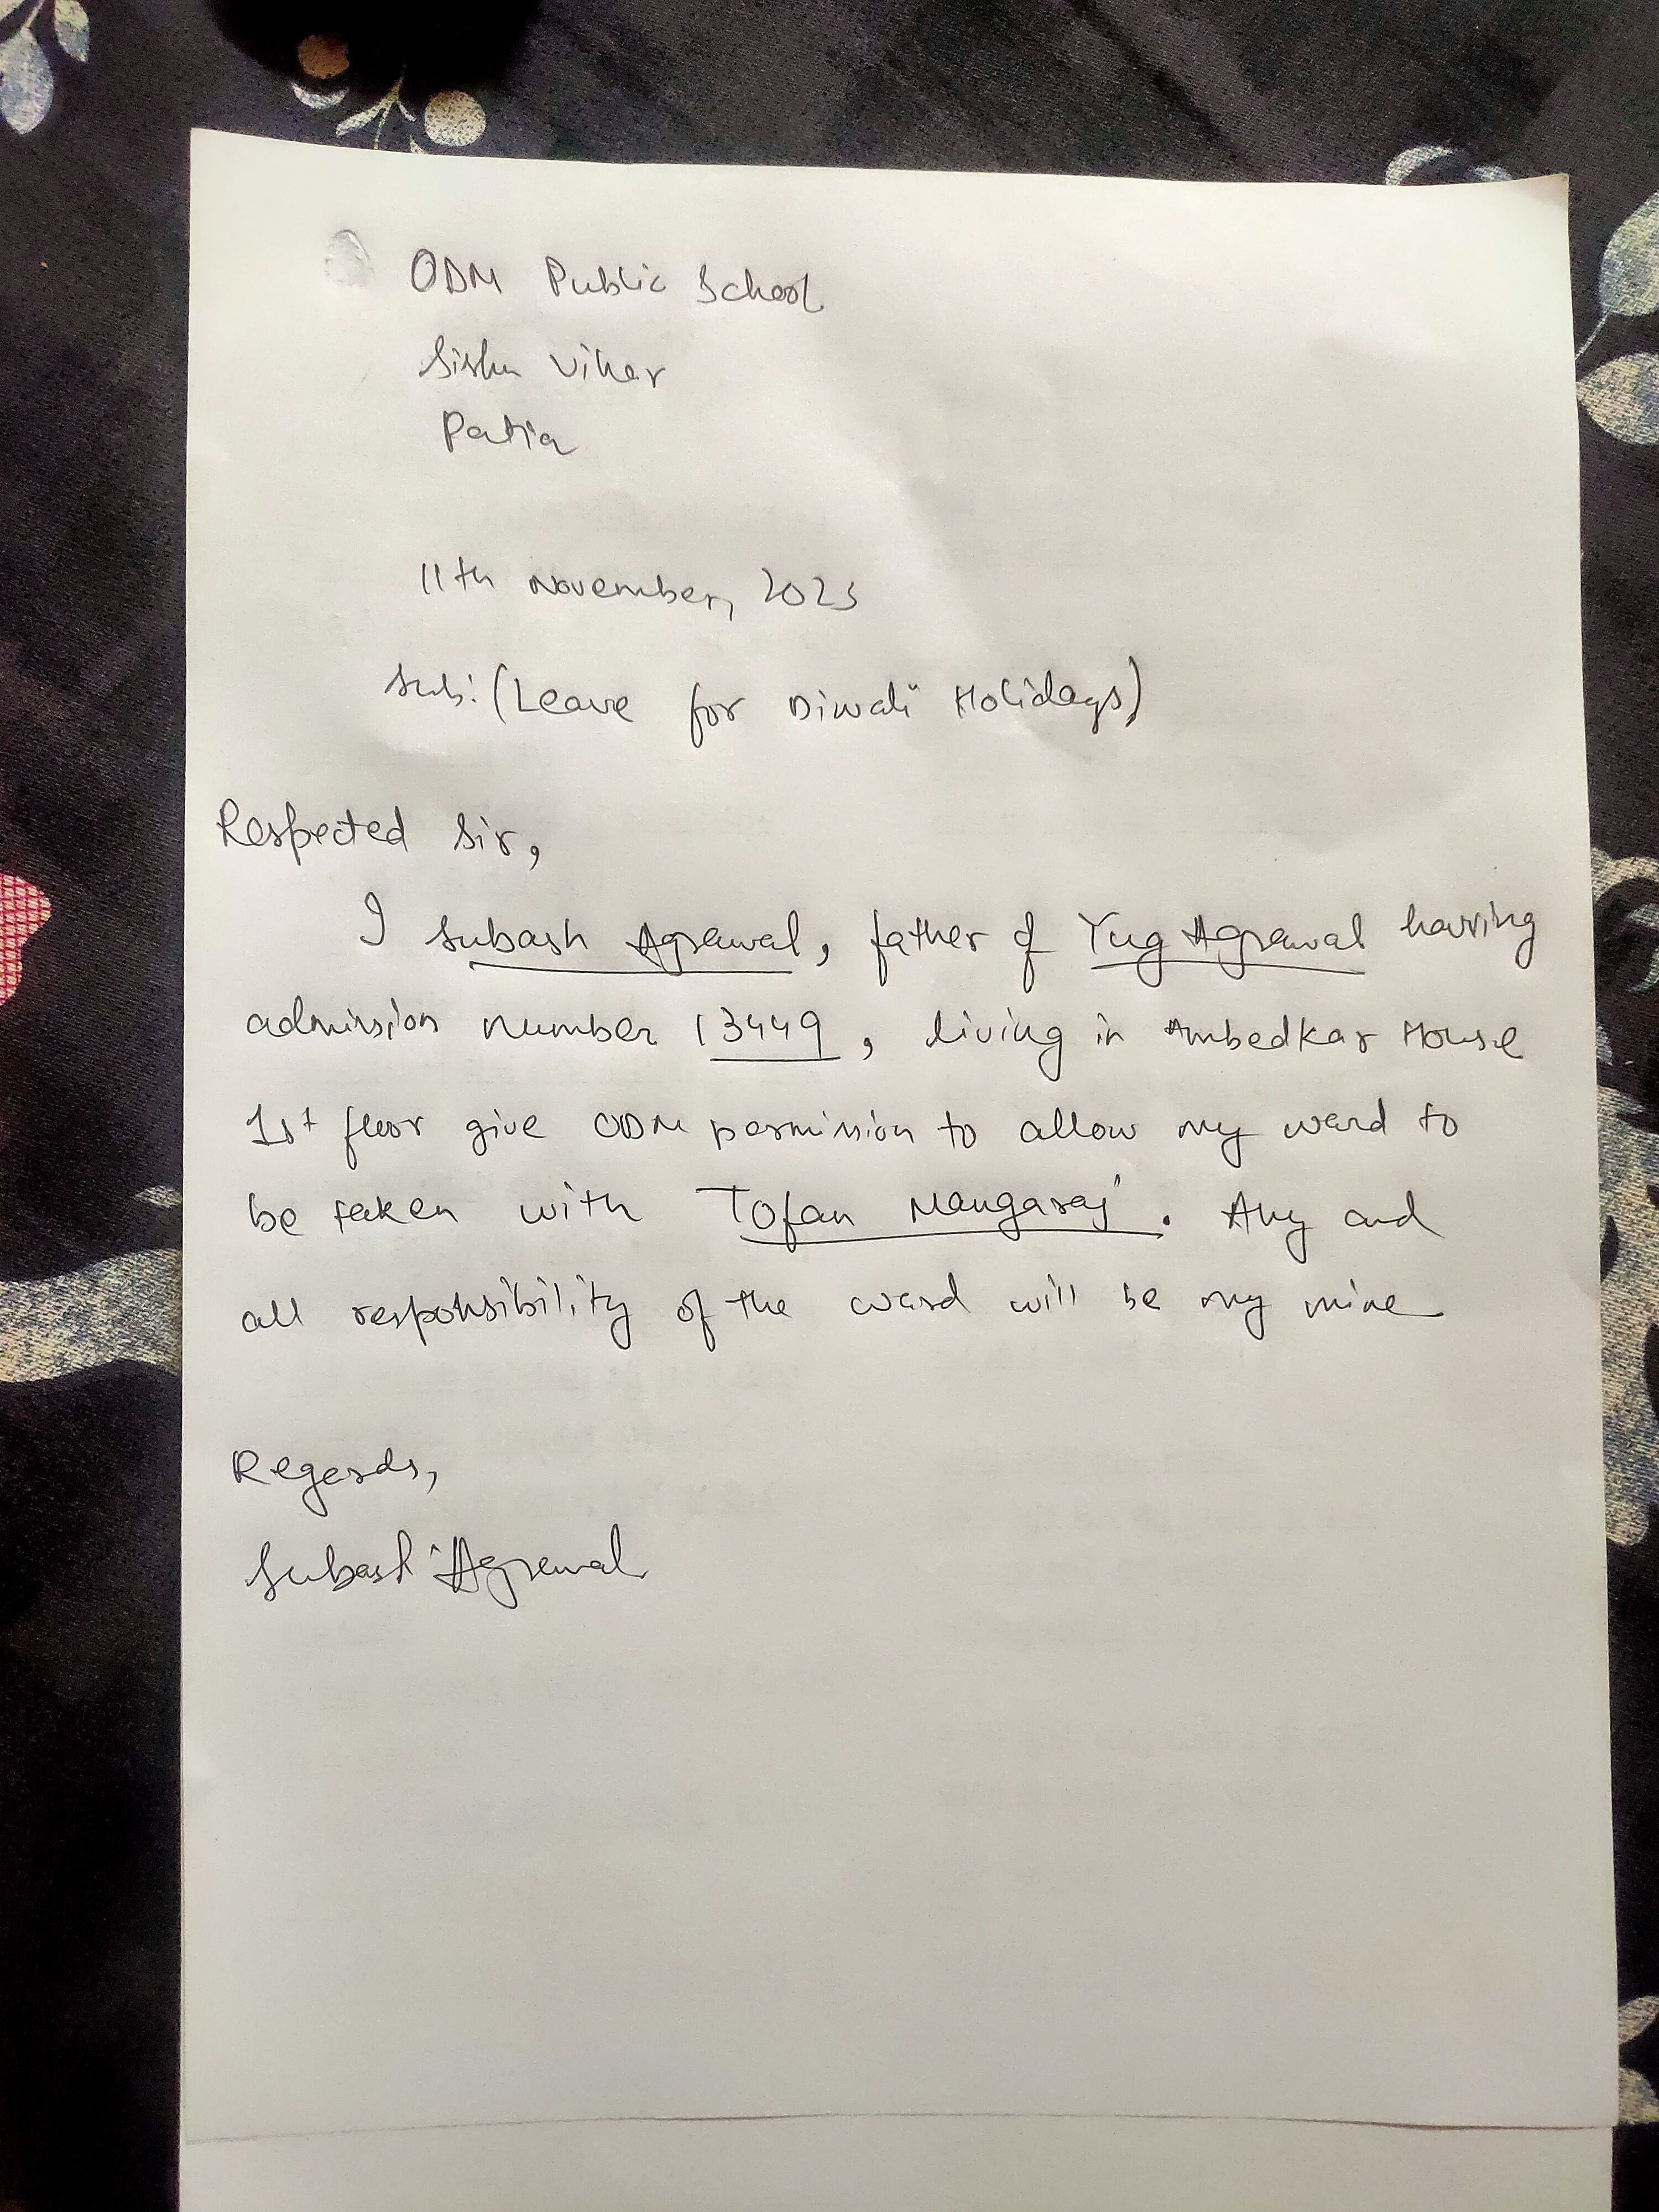 ODM Public School
Sishu Vihar
Patia
11th November, 2023
Sub: (Leave for Diwali Holidays)
Respected Sir,
I Subash Agrawal, father of Yug Agrawal having
admission number 13449, living in Ambedkar House
1st floor give ODM permission to allow my ward to
be taken with Tofan Mangaraj. Any and
all responsibility of the ward will be my mine
Regards,
Subash Agrawal